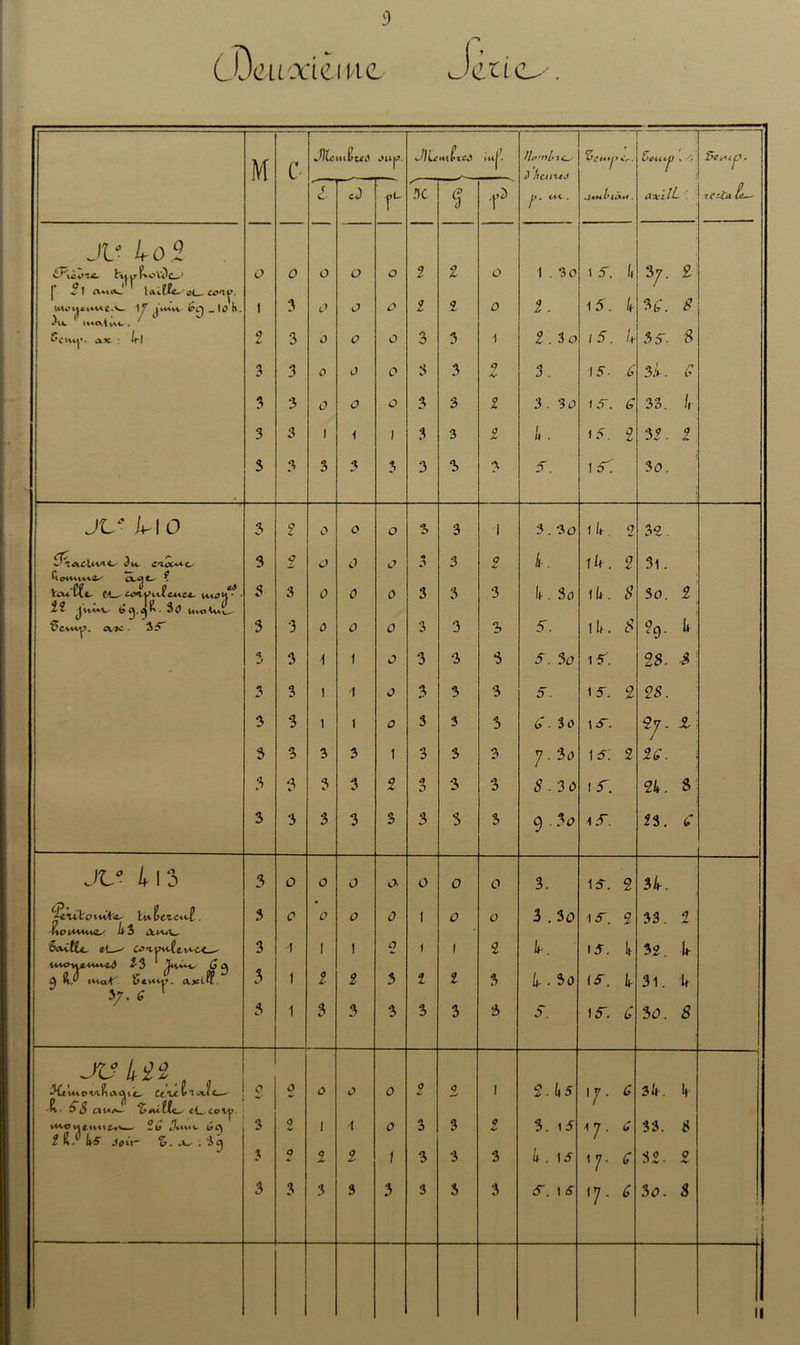 9
Deuxième Série.
M C Membres sup. Membres inf. Nombre d'heures p. m. Temp ér. ambiant. Temp. axill. Temp. rectale
é co pt K G pd
N° 402
Fièvre typhoïde
f 21 ans taille et corp.
moyenne. 17 juin 69 _ 10 h.
du matin.
Temp. ax : 41
0 0 0 0 0 2 2 0 1.30 15.4 37.2
1 3 0 0 0 2 2 0 2. 15.4 36.8
2 3 0 0 0 3 3 1 2.30 15.4 35.8
3 3 0 0 0 3 3 2 3. 15.6 34.6
3 3 0 0 0 3 3 2 3.30 15.6 33.4
3 3 1 1 1 3 3 2 4. 15.2 32.2
3 3 3 3 3 3 3 3 5. 15. 30.
N° 410
Fracture du crâne
homme âgé ?
taille et corpulence moy.
22 juin 69. 3h. 30 matin
Temp. ax. 35
3 2 0 0 0 3 3 1 3.30 14.2 32.
3 2 0 0 0 3 3 2 4. 14.2 31.
3 3 0 0 0 3 3 3 4.30 14.8 30.2
3 3 0 0 0 3 3 3 5. 14.8 29.4
3 3 1 1 0 3 3 3 5.30 15. 28.8
3 3 1 1 0 3 3 3 5. 15.2 28.
3 3 1 1 0 3 3 3 6.30 15. 27.2
3 3 3 3 1 3 3 3 7.30 15.2 26.
3 3 3 3 2 3 3 3 8.30 15. 24.8
3 3 3 3 3 3 3 3 9.30 15. 23.6
N° 413
Péritonite tubercul.
homme 43 ans
taille et corpulence
moyennes 23 Juin 69
9 h. mat Temp. axill.
37,6
3 0 0 0 0 0 0 0 3. 15.2 34.
3 0 0 0 0 1 0 0 3.30 15.2 33.2
3 1 1 1 2 1 1 2 4. 15.4 32.4
3 1 2 2 3 2 2 3 4.30 15.4 31.4
3 1 3 3 3 3 3 3 5. 15.6 30.8
N° 422
Hémorrhagie cérébrale
h. 58 ans Taille et corp.
moyenne 26 Juin 69
2 h. 45 soir T. ax : 39
2 2 0 0 0 2 2 1 2.45 17.6 34.4
3 2 1 1 0 3 3 2 3.15 17.6 33.8
3 2 2 2 1 3 3 3 4.15 17.6 32.2
3 3 3 3 3 3 3 3 5.15 17.6 30.8